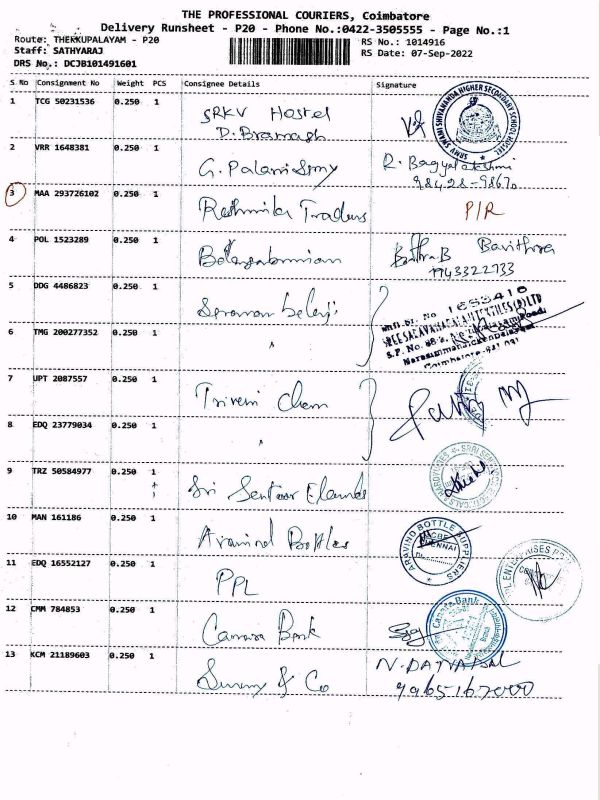 THE PROFESSIONAL COURIERS, Coimbatore
Delivery Runsheet - P20 - Phone No.:0422-3505555 - Page No.:1
Route: THEKKUPALAYAM - P20
RS No.: 1014916
Staff: SATHYARAJ
RS Date: 07-Sep-2022
DRS No.: DCJB101491601
S. No Consignment No Weight PCS Consignee Details Signature
1 TCG 50231536 0.250 1 SRKV Hostel
D.
SWAMI SHIVANANDA HIGHER SECONDARY SCHOOL HOSTEL
2 VRR 1648381 0.250 1 G. Palanisamy R. Bagyalakshmi
98428-98670
3 MAA 293726102 0.250 1 Rashmika Traders P/R
4 POL 1523289 0.250 1 Bavithra
9943322733
5 DDG 4486823 0.250 1 Saravana balaji
1653410
6 TMG 200277352 0.250 1 "
S.P. No.
Coimbatore
7 UPT 2087557 0.250 1 Triveni Chem
8 EDQ 23779034 0.250 1 "
9 TRZ 50584977 0.250 1 Sri
10 MAN 161186 0.250 1 Aravind Bottles
ARAVIND BOTTLE SUPPLIERS
11 EDQ 16552127 0.250 1 PPL
ENTERPRISES
12 CMM 784853 0.250 1 Canara Bank
Canara Bank
13 KCM 21189603 0.250 1 & Co
9965167000